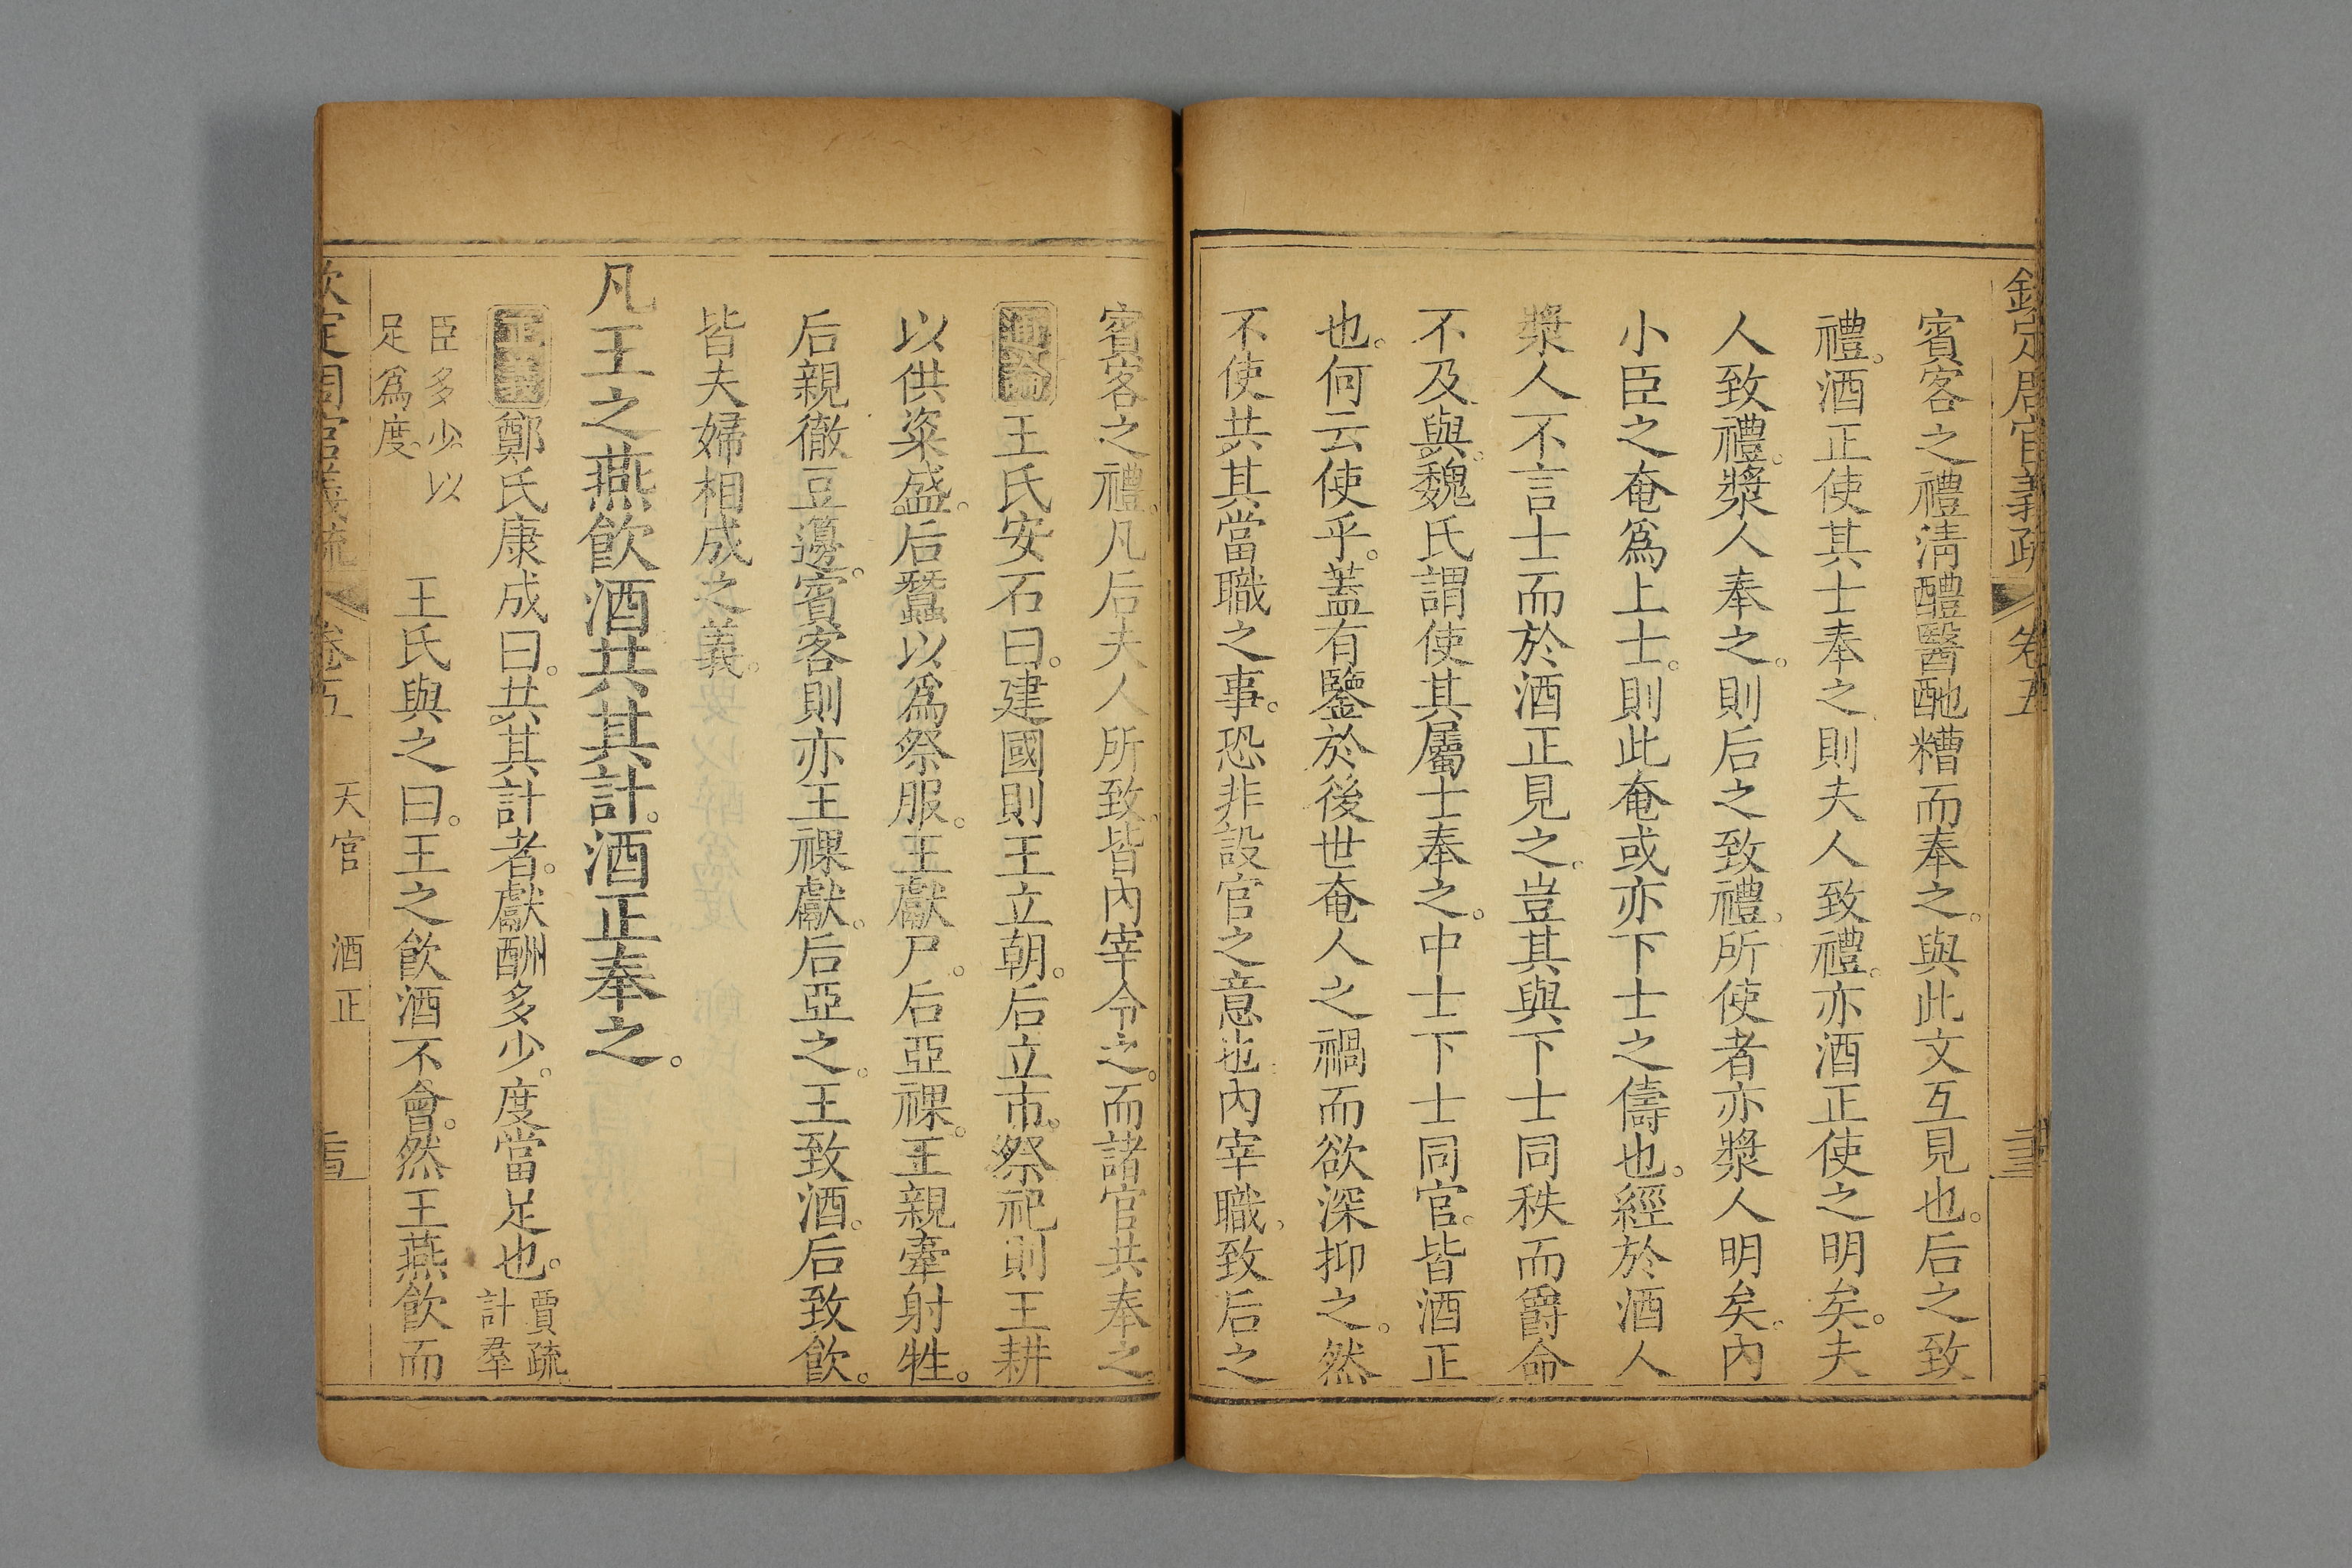 欽定周官義疏 卷五
賓客之禮淸醴醫酏糟而奉之。與此文互見也。后之致
禮。酒正使其士奉之則夫人致禮。亦酒正使之明矣。夫
人致禮。漿人奉之。則后之致禮。所使者亦漿人明矣。內
小臣之奄爲上士。則此奄或亦下士之儔也。經於酒人
漿人不言士而於酒正見之。豈其與下士同秩而爵命
不及與。魏氏謂使其屬士奉之。中士下士同官。皆酒正
也。何云使乎。蓋有鑒於後世奄人之禍而欲深抑之。然
不使共其當職之事。恐非設官之意也內宰職。致后之
賓客之禮。凡后夫人所致。皆內宰令之。而諸官共奉之。
通論王氏安石曰。建國則王立朝。后立市。祭祀則王耕
以供粢盛。后蠶以爲祭服。王獻尸。后亞祼。王親牽射牲。
后親徹豆籩。賓客則亦王祼獻。后亞之。王致酒。后致飮。
皆夫婦相成之義。
凡王之燕飮酒共其計。酒正奉之。
正義鄭氏康成曰。共其計者。獻酬多少。度當足也。賈疏。計羣
臣多少。以足爲度。 王氏與之曰。王之飮酒不會。然王燕飮而
欽定周官義疏 卷五 天官 酒正